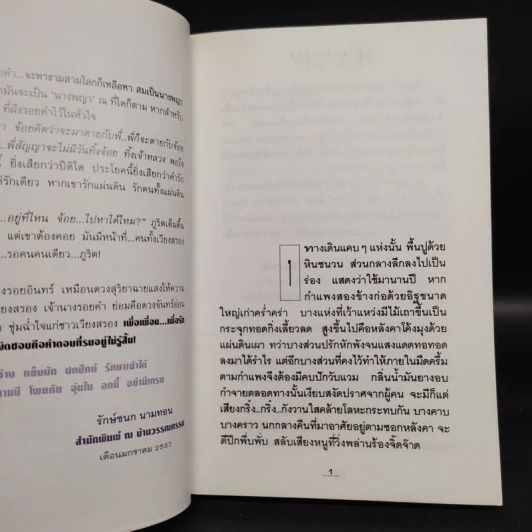 คำ...จะหางามสามโลกก็เหลือหา สมเป็นนางพญา
มันจะเป็น 'นางพญา' ณ ที่ใดก็ตาม หากสำหรับ
ที่ฝังรอยคำไว้ในหัวใจ
จ้อยคิดว่าจะมาตายกับพี่..พี่ก็จะตายกับจ้อย
..พี่สัญญาจะไม่มีวันทิ้งจ้อย ทิ้งเจ้าหลวง พอใจ
ยิ่งเสียกว่าปีติใด ประโยคนี้ยิ่งเสียกว่าคำรัก
รักเดียว หากเขารักแผ่นดิน รักคนทั้งแผ่นดิน
...อยู่ที่ไหน จ้อย...ไปหาได้ไหม?" ภูริตเต้นตื้น
แต่เขาต้องคอย มันมีหน้าที่...คนทั้งเวียงสรอง
...รอคนคนเดียว...ภูริต!
รอยอินทร์ เหมือนดวงสุริยาฉายแสงให้ความ
เวียงสรอง เจ้านางรอยคำ ย่อมคือดวงจันทร์อ่อน
ชุ่มฉ่ำใจแก่ชาวเวียงสรอง เพื่อเพื่อน...เพื่อรัก
ผิดชอบคือคำตอบที่รบอยู่ไม่รู้สิ้น!
รักษ์ชนก นามทอน
สำนักพิมพ์ ณ บ้านวรรณกรรม
เดือนมกราคม 2537
๑
ทางเดินแคบๆ แห่งนั้น พื้นปูด้วย
หินชนวน ส่วนกลางลึกลงไปเป็น
ร่อง แสดงว่าใช้มานานปี หาก
กำแพงสองข้างก่อด้วยอิฐขนาด
ใหญ่เก่าคร่ำคร่า บางแห่งที่เว้าแหว่งมีไม้เถาขึ้นเป็น
กระจุกทอดกิ่งเลี้ยวลด สูงขึ้นไปคือหลังคาโค้งมุงด้วย
แผ่นดินเผา ทว่าบางส่วนปรักหักพังจนแสงแดดทอทอด
ลงมาได้รำไร แต่อีกบางส่วนที่คงไว้ทำให้ภายในมืดครึ้ม
ตามกำแพงจึงต้องมีคบปักวับแวม กลิ่นน้ำมันยางอบ
กำจายตลอดทางนั้นเงียบสงัดปราศจากผู้คน จะมีก็แต่
เสียงกริ๊ง..กริ๊ง..กังวานใสคล้ายโลหะกระทบกัน บางคาบ
บางคราว นกกลางคืนที่มาอาศัยอยู่ตามซอกหลังคา จะ
ตีปีกพึ่บพั่บ สลับเสียงหนูที่วิ่งพล่านร้องจี๊ดจ๊าด
1